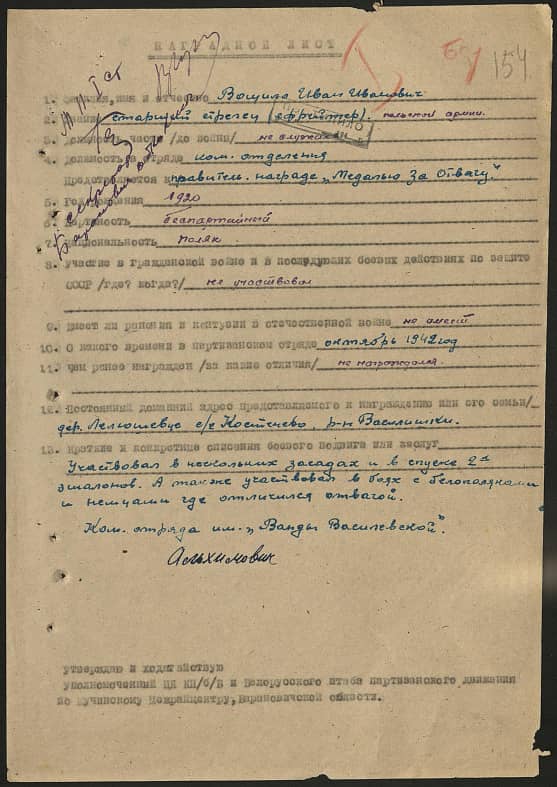 154
НАГРАДНОЙ ЛИСТ
1. Фамилия, имя и отчество Вощило Иван Иванович
2. Звание старший стрелец (ефрейтер). польской армии.
3. Должность части /до войны/ не служил
4. Должность в отряде ком. отделения
Представляется к правитель. награде „Медалью За Отвагу".
5. Год рождения 1920
6. Партийность беспартийный
7. Национальность поляк
8. Участие в гражданской войне и в последующих боевых действиях по защите
СССР /где? когда?/ не участвовал
9. Имеет ли ранения и контузии в отечественной войне не имеет
10. С какого времени в партизанском отряде октябрь 1942 год
11. Чем ранее награжден /за какие отличия/ не награждался
12. Постоянный домашний адрес представляемого к награждению или его семьи/
дер. с/с р-н Василишки.
13. Краткие и конкретные описания боевого подвига или заслуг
Участвовал в нескольких засадах и в спуске 2х
эшалонов. А также участвовал в боях с белополяками
и немцами где отличился отвагой.
Ком. отряда им. „Ванды Василевской".
Альхимович
утверждаю и ходатайствую
уполномоченный ЦК КП/б/Б и Белорусского штаба партизанского движения
по Щучинскому Межрайцентру, Барановичской области.